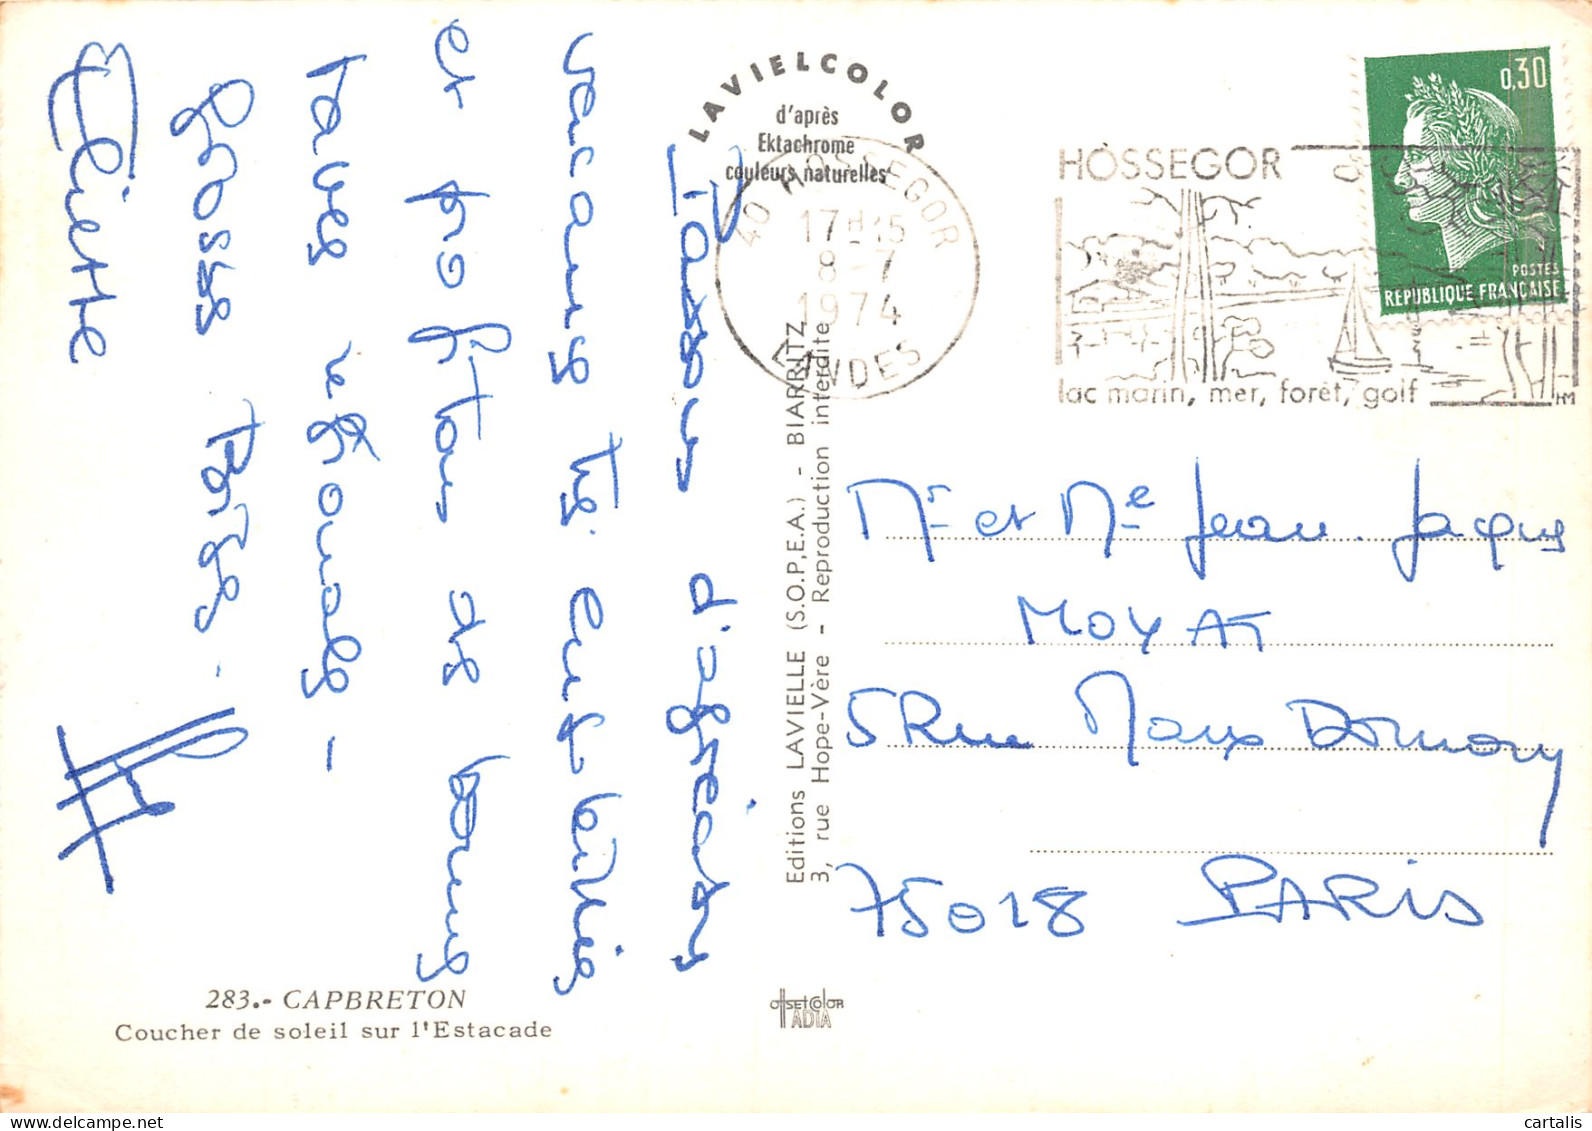 Passons d'agréables
vacances très ensoleillées
et profitons de bonnes
tartes régionales -
Grosses bises.
Eliette
LAVIELCOLOR
d'après
Ektachrome
couleurs naturelles
40 HOSSEGOR
17H15
8-7
1974
LANDES
HOSSEGOR
lac marin, mer, forêt, golf
HM
0,30
POSTES
REPUBLIQUE FRANÇAISE
Editions LAVIELLE (S.O.P.E.A.) - BIARRITZ
3, rue Hope-Vère - Reproduction interdite
Mr et Me Jean-Jacques
MOYAT
5 Rue Marx Dormoy
75018 PARIS
283.- CAPBRETON
Coucher de soleil sur l'Estacade
offsetcolor
ADIA
delcampe.net
cartalis